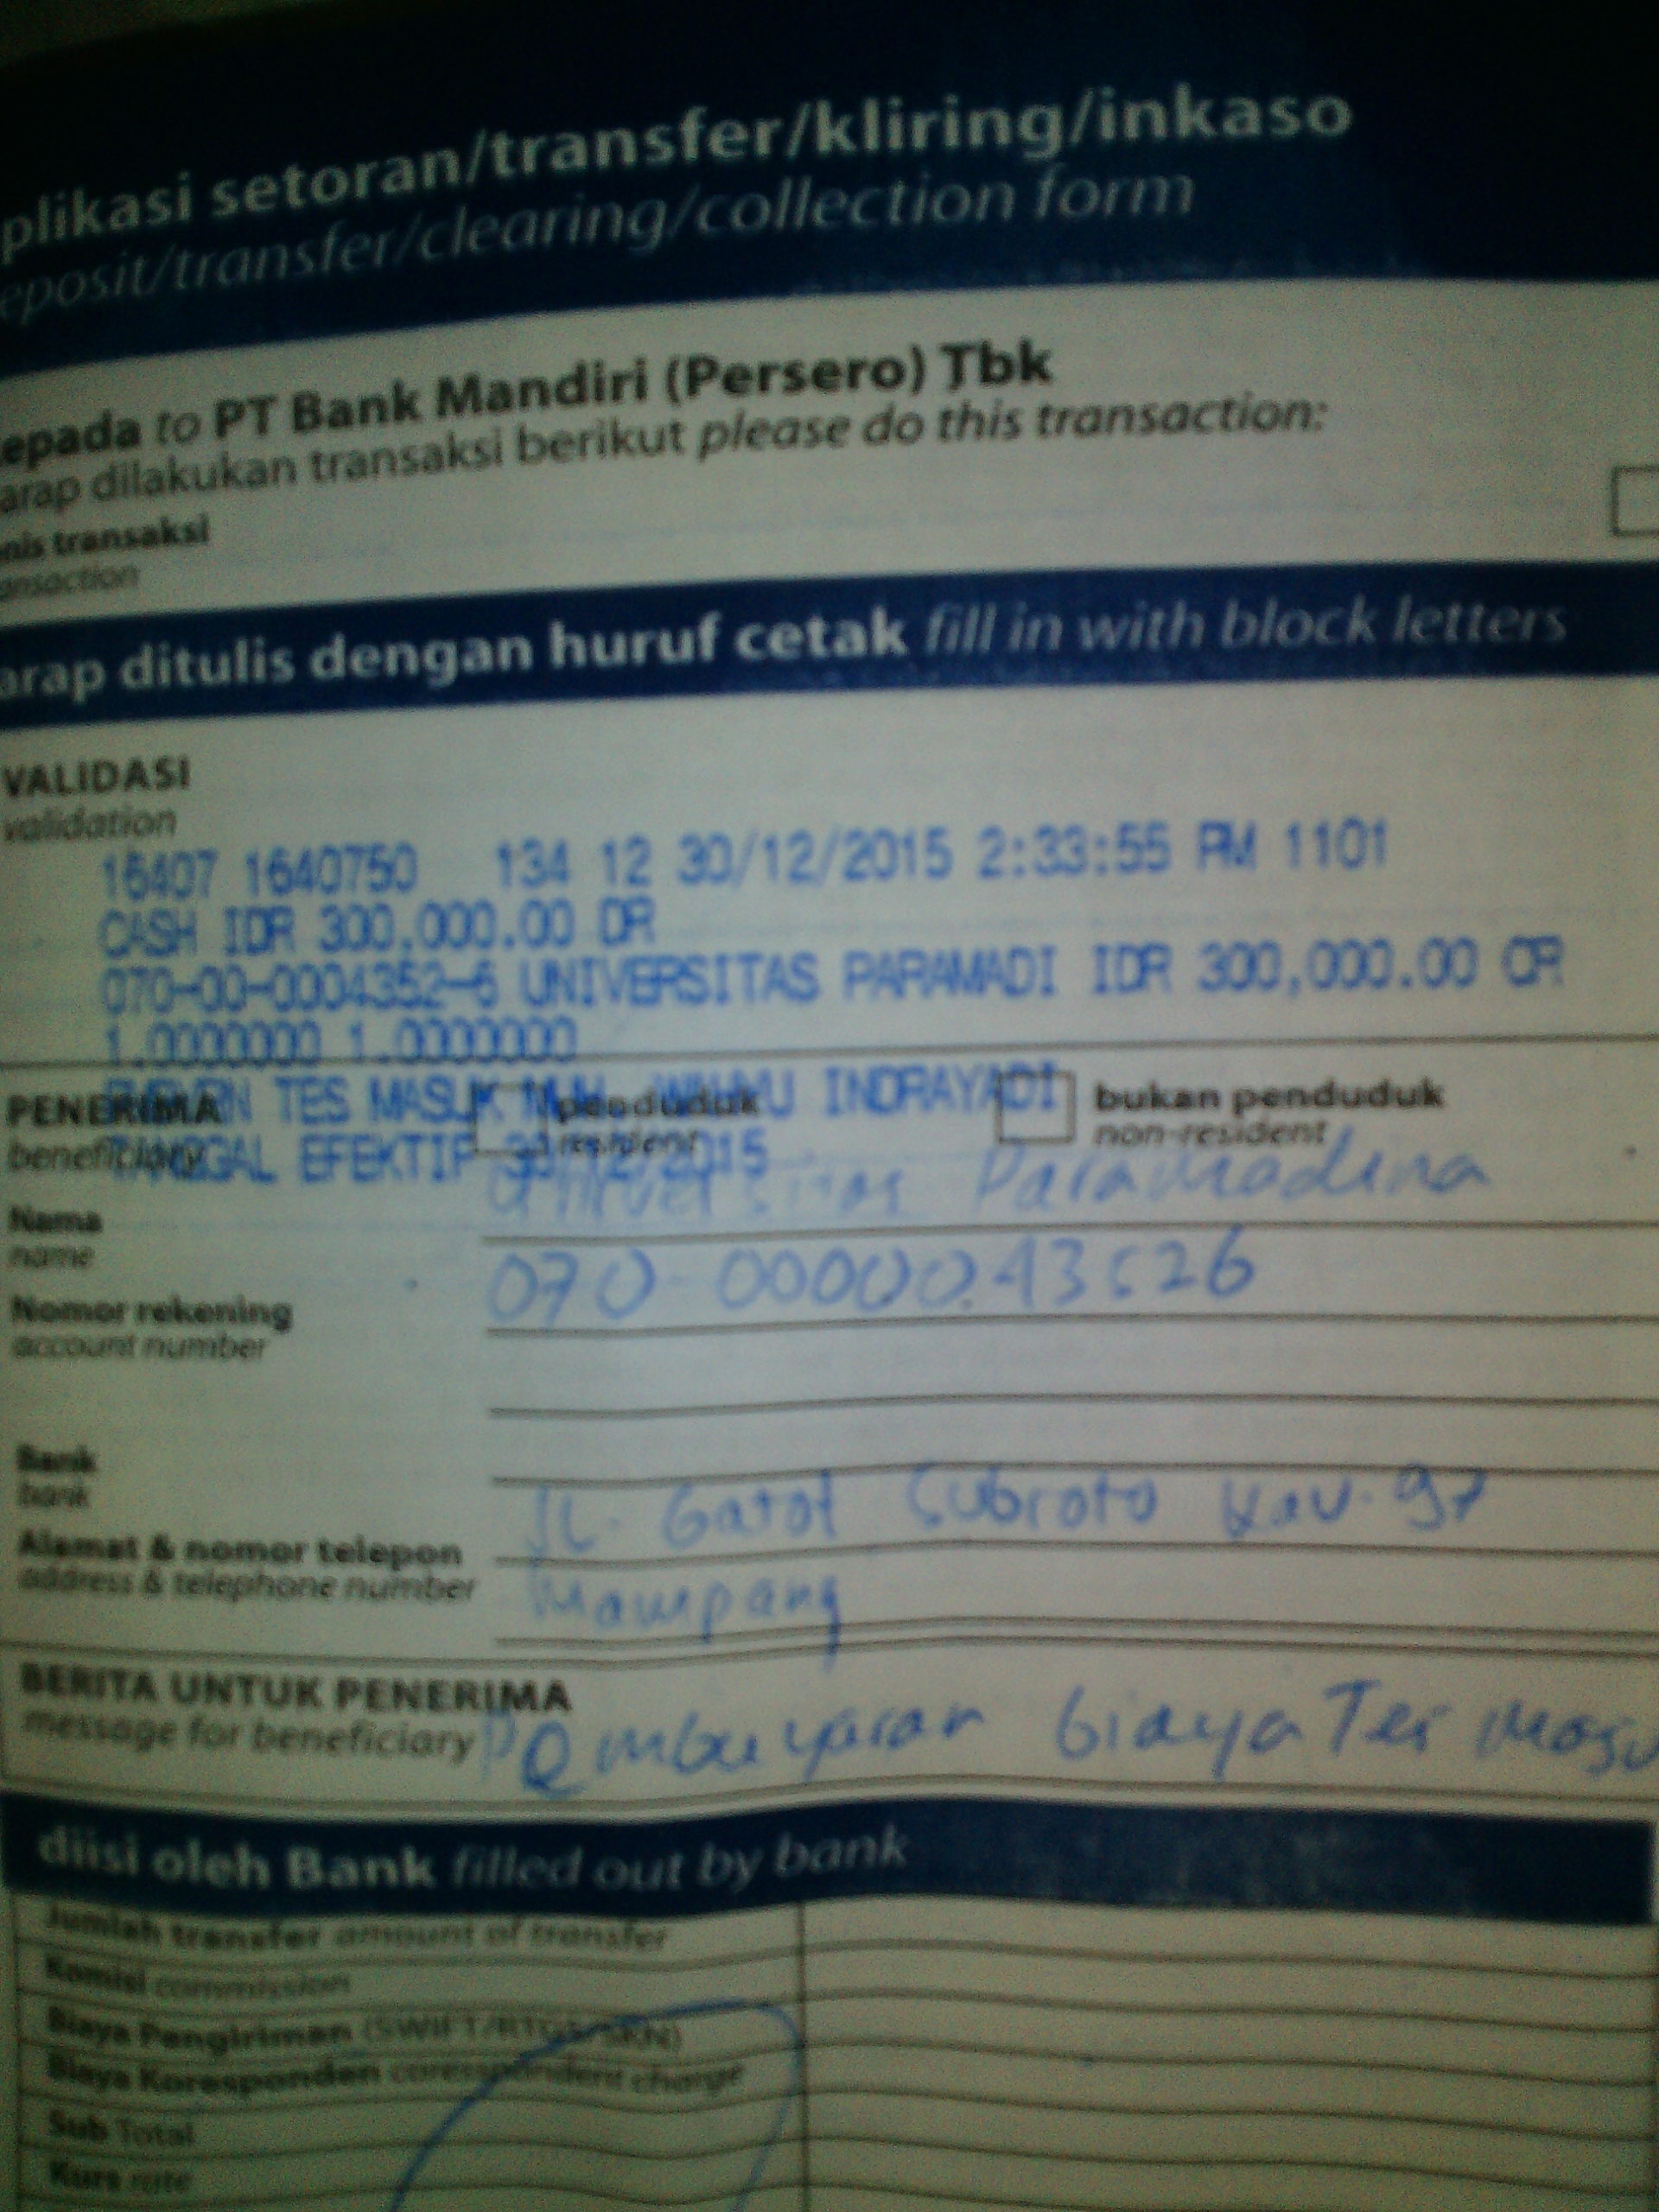 plikasi setoran/transfer/kliring/inkaso
eposit/transfer/clearing/collection form
epada to PT Bank Mandiri (Persero) Tbk
arap dilakukan transaksi berikut please do this transaction:
nis transaksi
ansaction
arap ditulis dengan huruf cetak fill in with block letters
VALIDASI
validation
16407 1640750 134 12 30/12/2015 2:33:55 PM 1101
CASH IDR 300,000.00 DR
070-00-0004352-6 UNIVERSITAS PARAMADI IDR 300,000.00 CR
1.0000000 1.0000000
TES MASUK INDRAYADI
PENERIMA penduduk bukan penduduk
beneficiary resident non-resident
TANGGAL EFEKTIP 30/12/2015
Universitas Paramadina
Nama
name
070-0000043526
Nomor rekening
account number
Bank
bank
JL. Gatot Subroto Kav. 97
Alamat & nomor telepon
address & telephone number
Mampang
BERITA UNTUK PENERIMA
message for beneficiary Pembayaran biaya Tes Masu
diisi oleh Bank filled out by bank
Jumlah transfer amount of transfer
Komisi commission
Biaya Pengiriman (SWIFT/RTGS/SKN)
Biaya Koresponden corespondent charge
Sub Total
Kurs rate